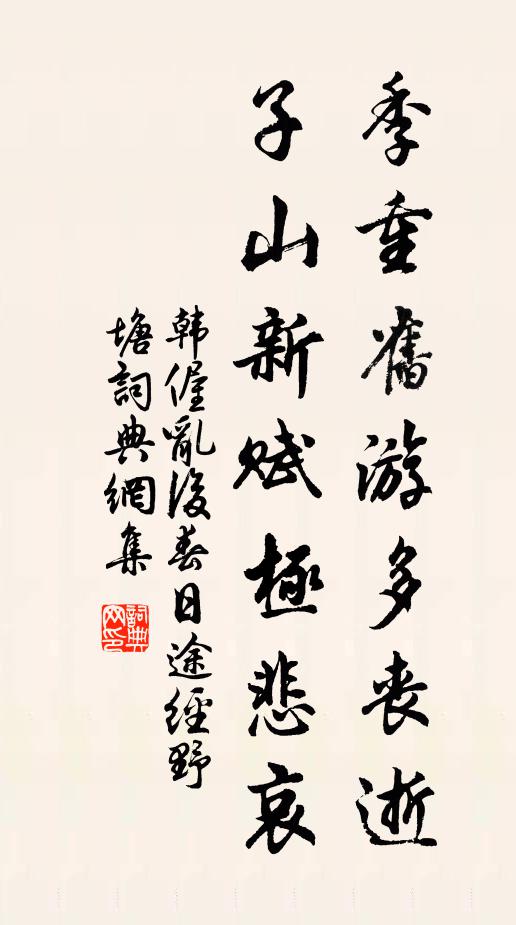 季重舊游多喪逝
子山新賦極悲哀
韓偓亂後春日途經野
塘詞典網集
詞典網印